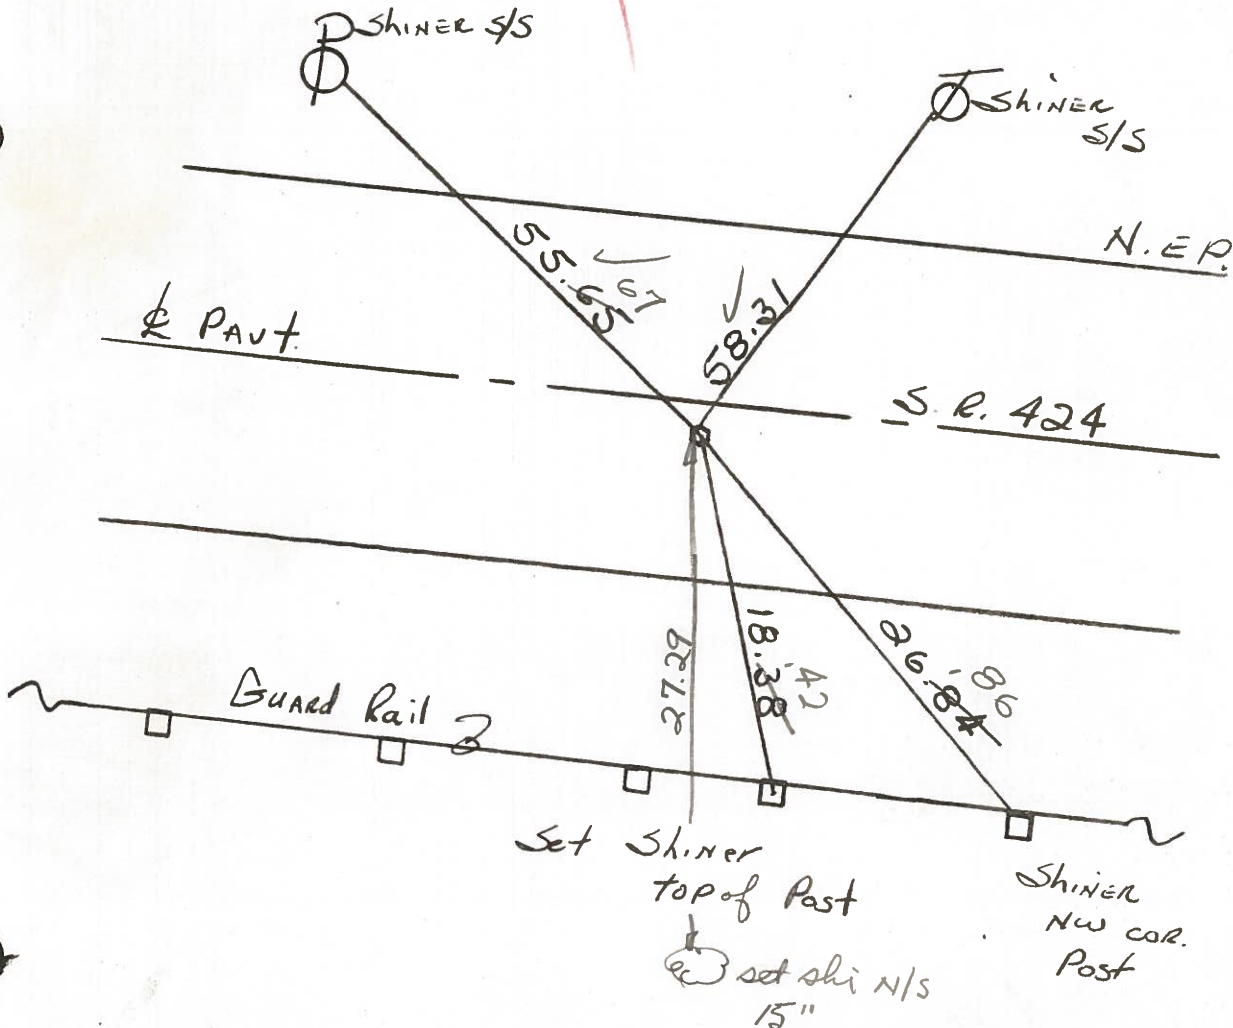 Shiner S/S
Shiner
S/S
N. E.P.
55.65
67
58.31
℄ PAVT.
S. R. 424
27.29
18.38
.42
26.84
.86
Guard Rail
Set Shiner
top of Post
Shiner
NW COR.
Post
set shi N/S
15"